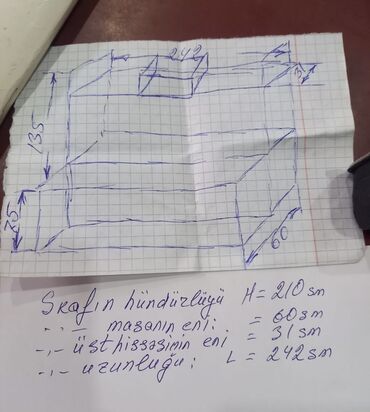 242
3
135
75
60
Skafın hündürlüyü H = 210 sm
-"- masanın eni: = 60 sm
-"- üst hissəsinin eni = 31 sm
-"- uzunluğu: L = 242 sm